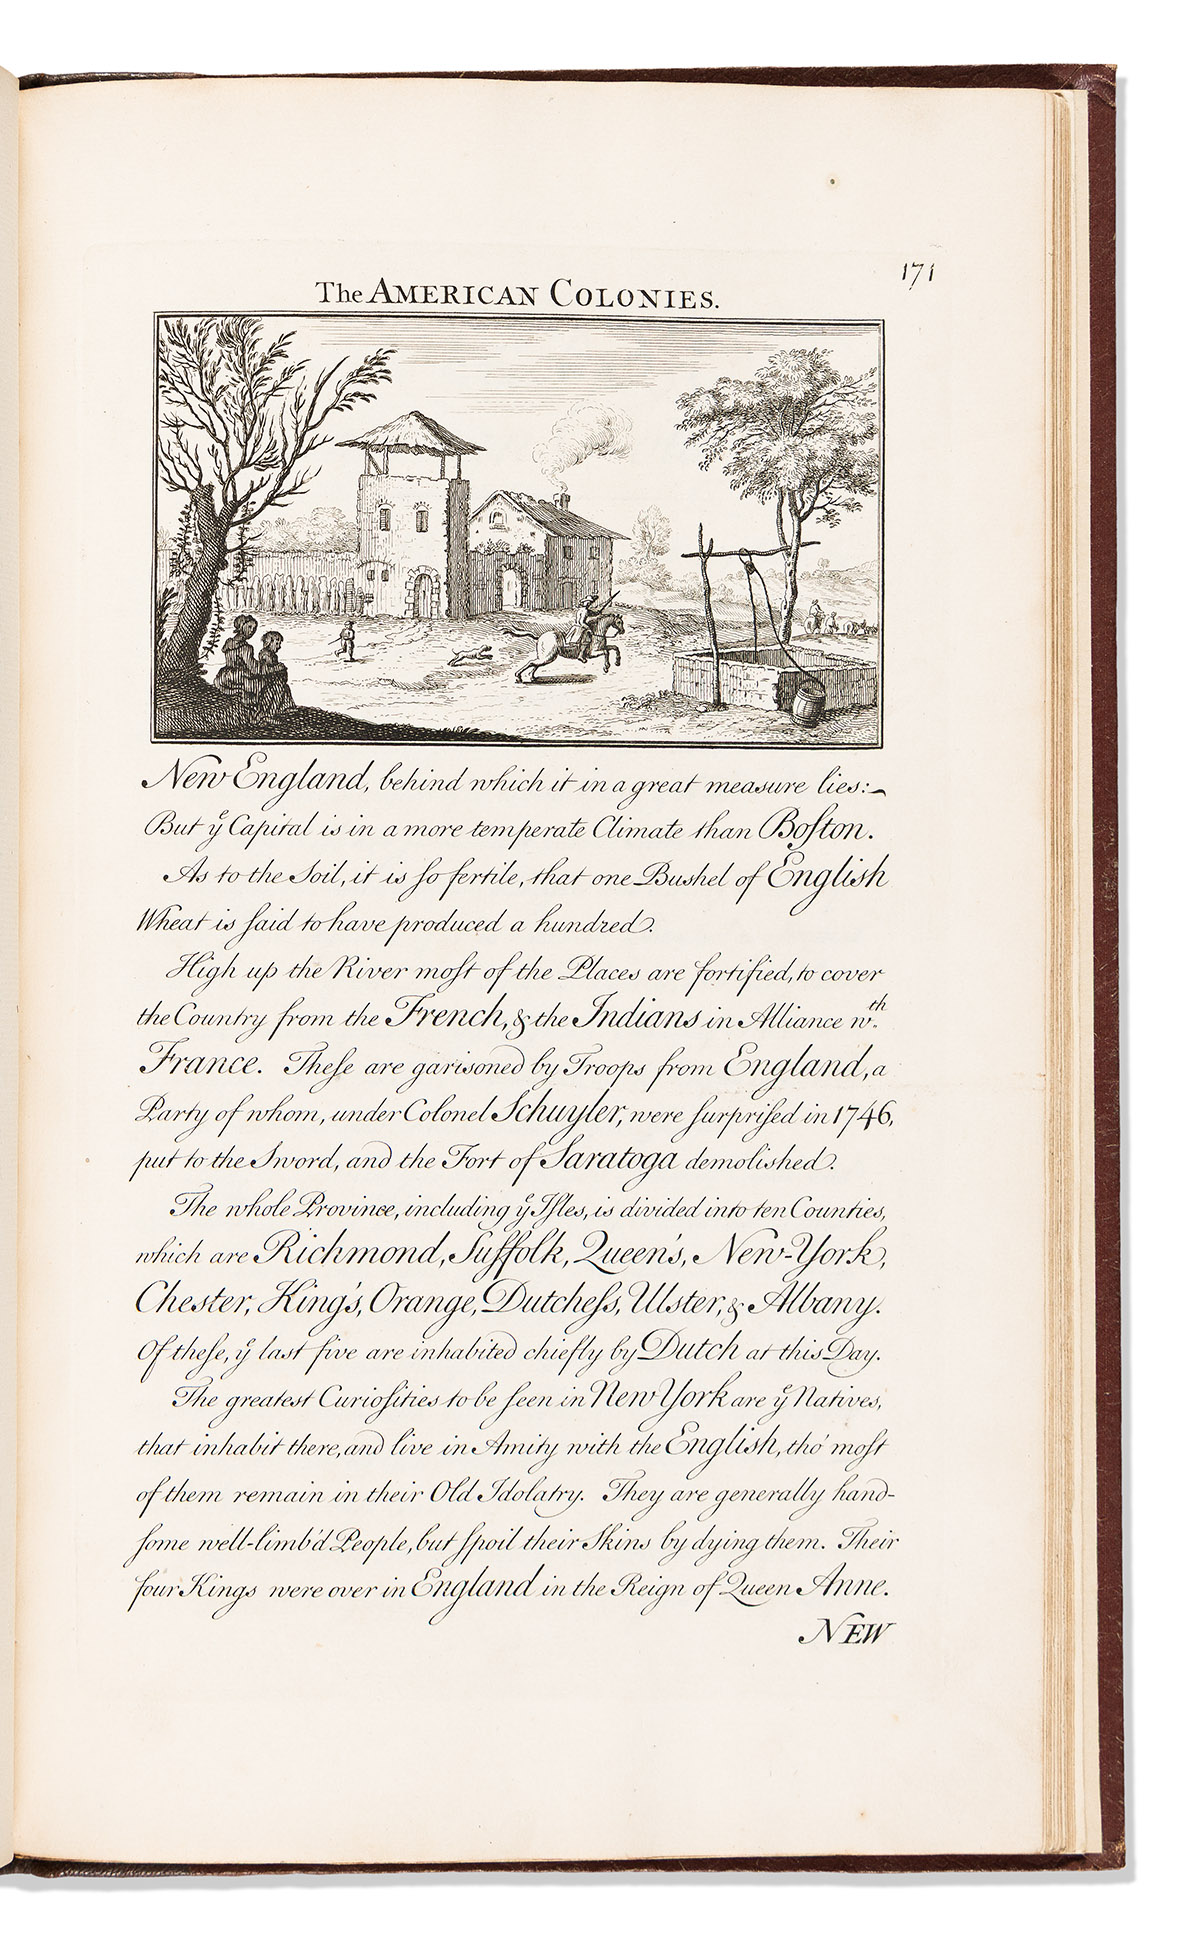 171
The AMERICAN COLONIES.
New England, behind which it in a great measure lies:
But yͤ Capital is in a more temperate Climate than Boſton.
As to the Soil, it is ſo fertile, that one Bushel of English
Wheat is ſaid to have produced a hundred.
High up the River moſt of the Places are fortified, to cover
the Country from the French, & the Indians in Alliance wᵗʰ.
France. Theſe are garisoned by Troops from England, a
Party of whom, under Colonel Schuyler, were ſurpriſed in 1746,
put to the Sword, and the Fort of Saratoga demolished.
The whole Province, including yͤ Iſles, is divided into ten Counties,
which are Richmond, Suffolk, Queen's, New-York,
Chester, King's, Orange, Dutcheſs, Ulster, & Albany.
Of theſe, yͤ last five are inhabited chiefly by Dutch at this Day.
The greatest Curioſities to be ſeen in New York are yͤ Natives,
that inhabit there, and live in Amity with the English, tho' moſt
of them remain in their Old Idolatry. They are generally hand-
ſome well-limb'd People, but ſpoil their Skins by dying them. Their
four Kings were over in England in the Reign of Queen Anne.
NEW